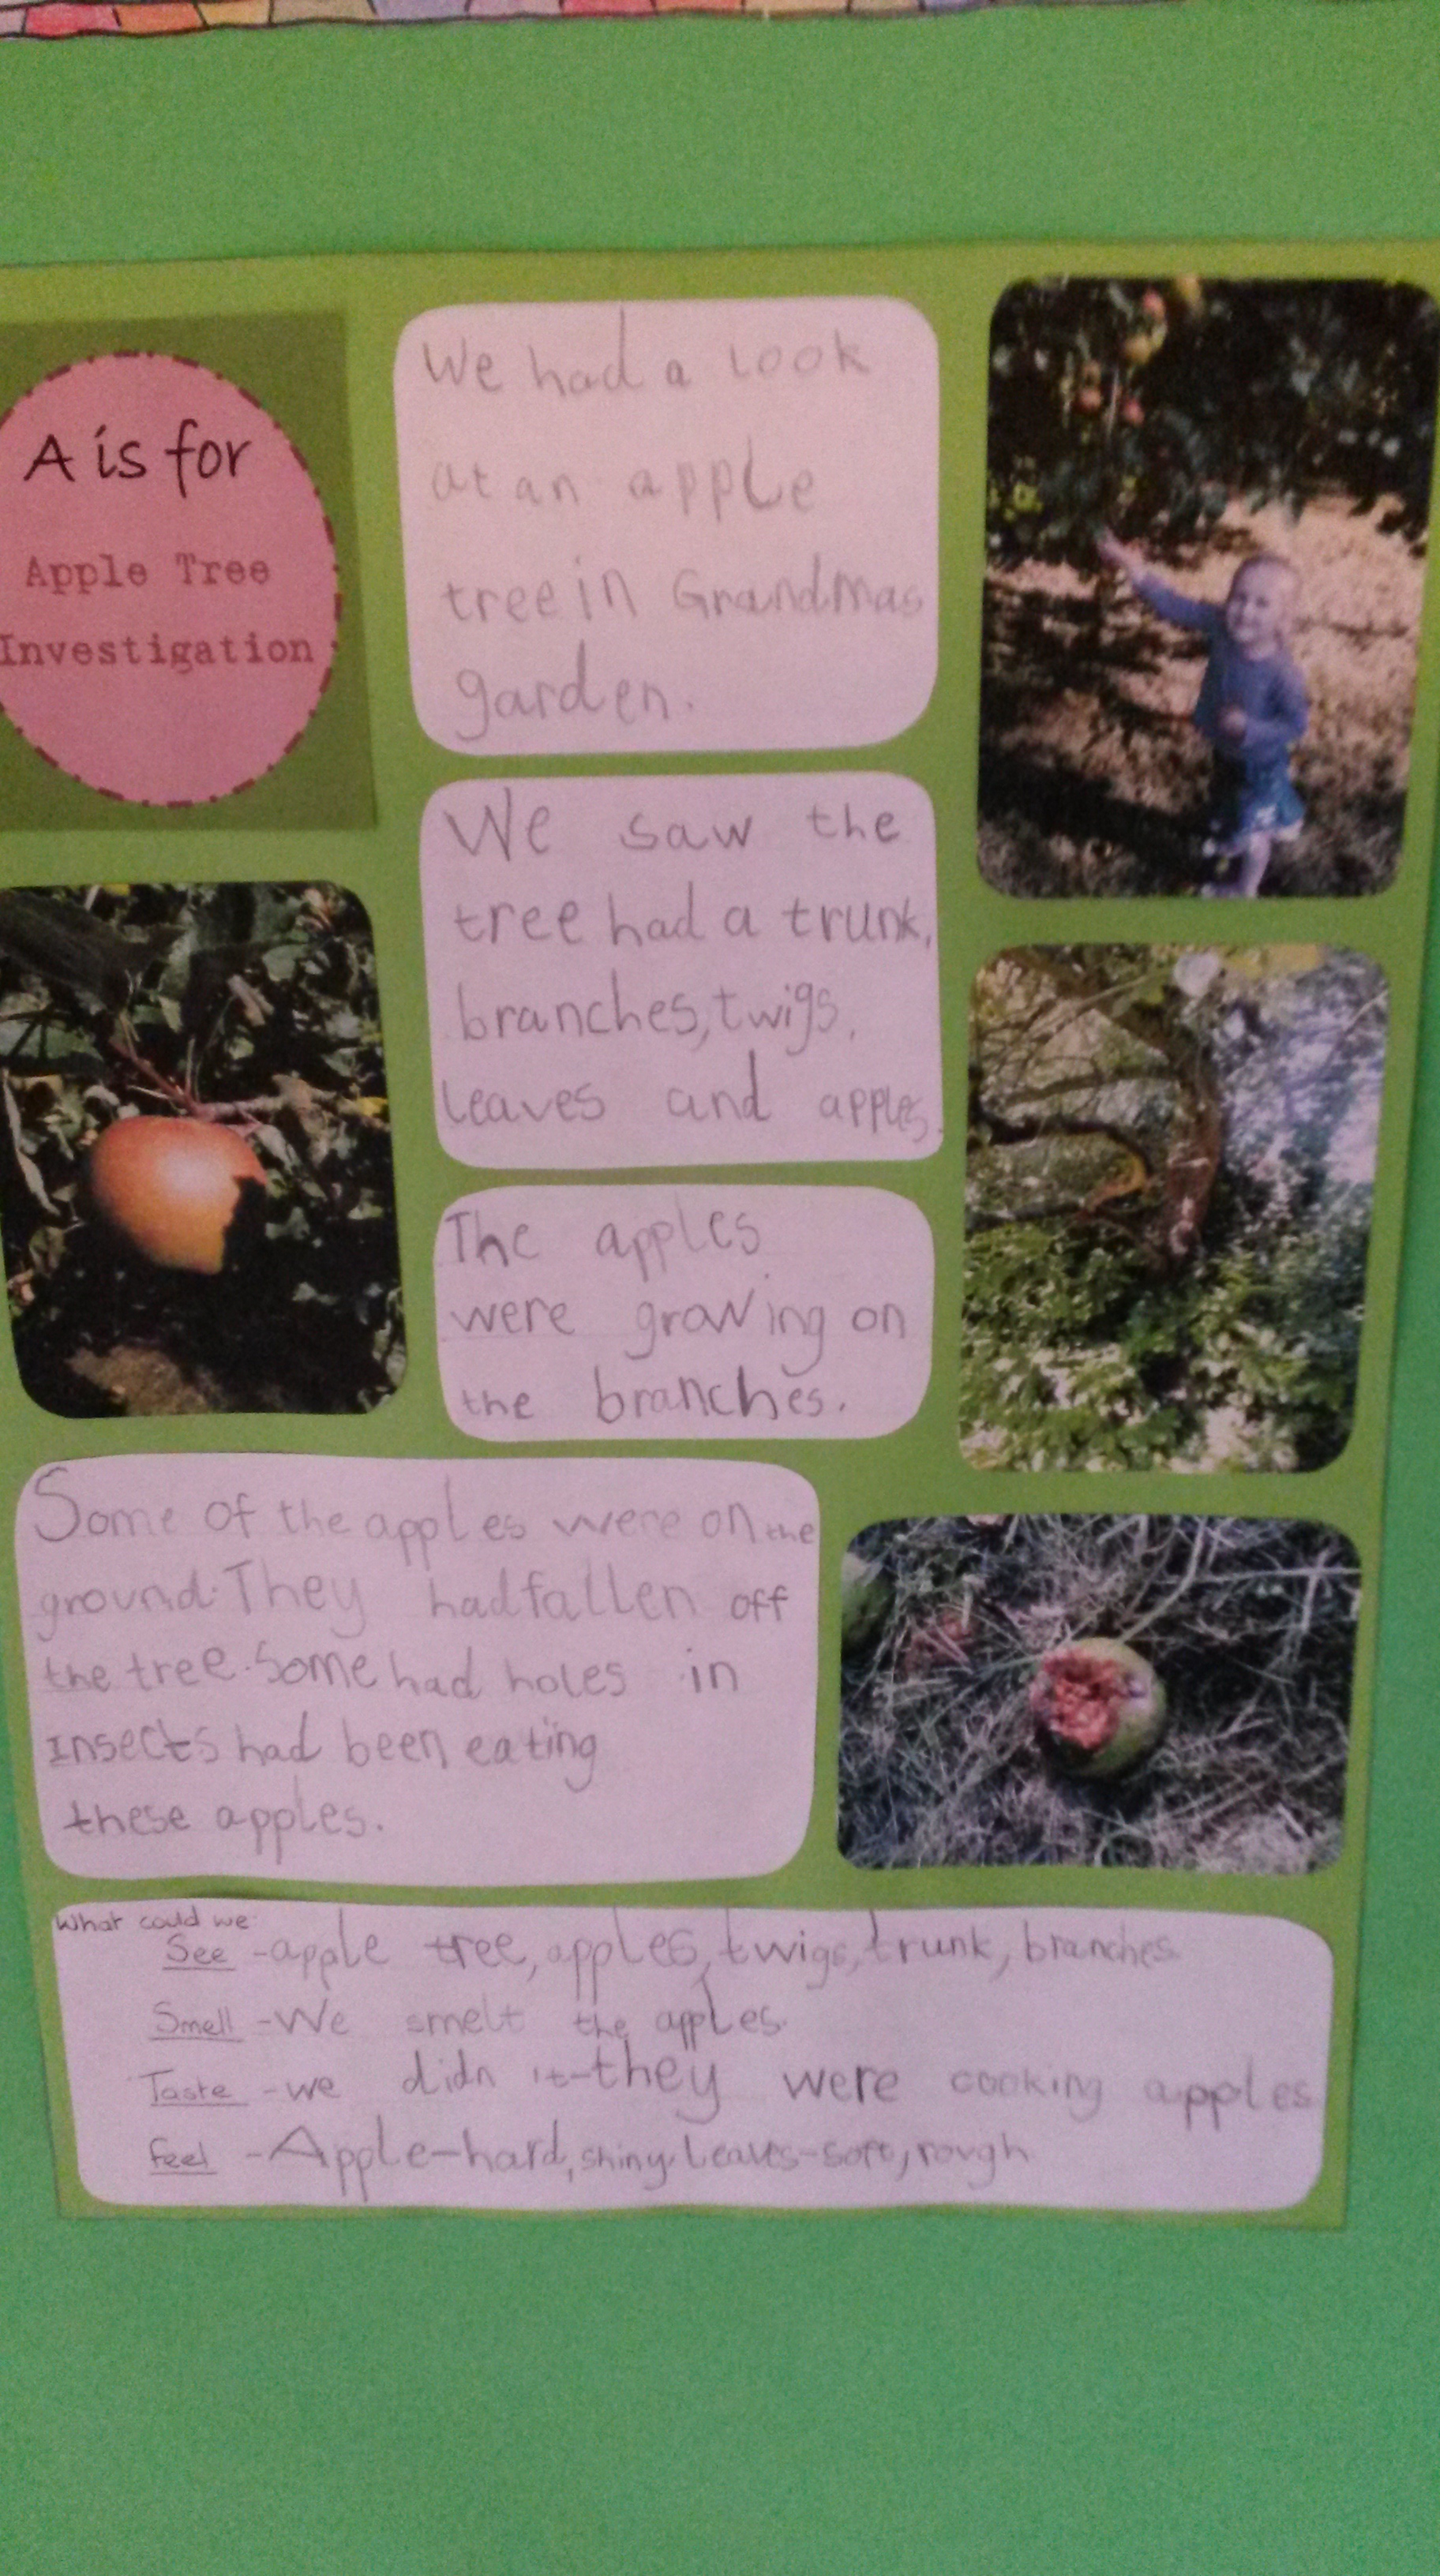 A is for
Apple Tree
Investigation
We had a look
at an apple
tree in Grandmas
garden.
We saw the
tree had a trunk,
branches, twigs,
leaves and apples.
The apples
were growing on
the branches.
Some of the apples were on the
ground. They had fallen off
the tree. Some had holes in
Insects had been eating
these apples.
What could we:
See - apple tree, apples, twigs, trunk, branches
Smell - We smelt the apples.
Taste - we didn't - they were cooking apples
Feel - Apple - hard, shiny, leaves - soft, rough